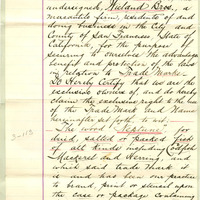 undersigned, Wieland Bros., a
mercantile firm, resident of and
doing business in the City and
County of San Francisco State of
California, for the purpose of
securing to ourselves the advantage
benefit and protection of the laws
in relation to Trade Marks,
Do Hereby Certify that we are the
exclusive owners of, and do hereby
claim the exclusive right to the use
of the Trade Mark and Name
hereinafter set forth to wit:
The word "Neptune" for
dried, salted or packed fish
of all kinds including Codfish
Mackerel and Herring, and
which said trade Mark
it is and has been our practice
to brand, print or stencil upon
the case or package containing